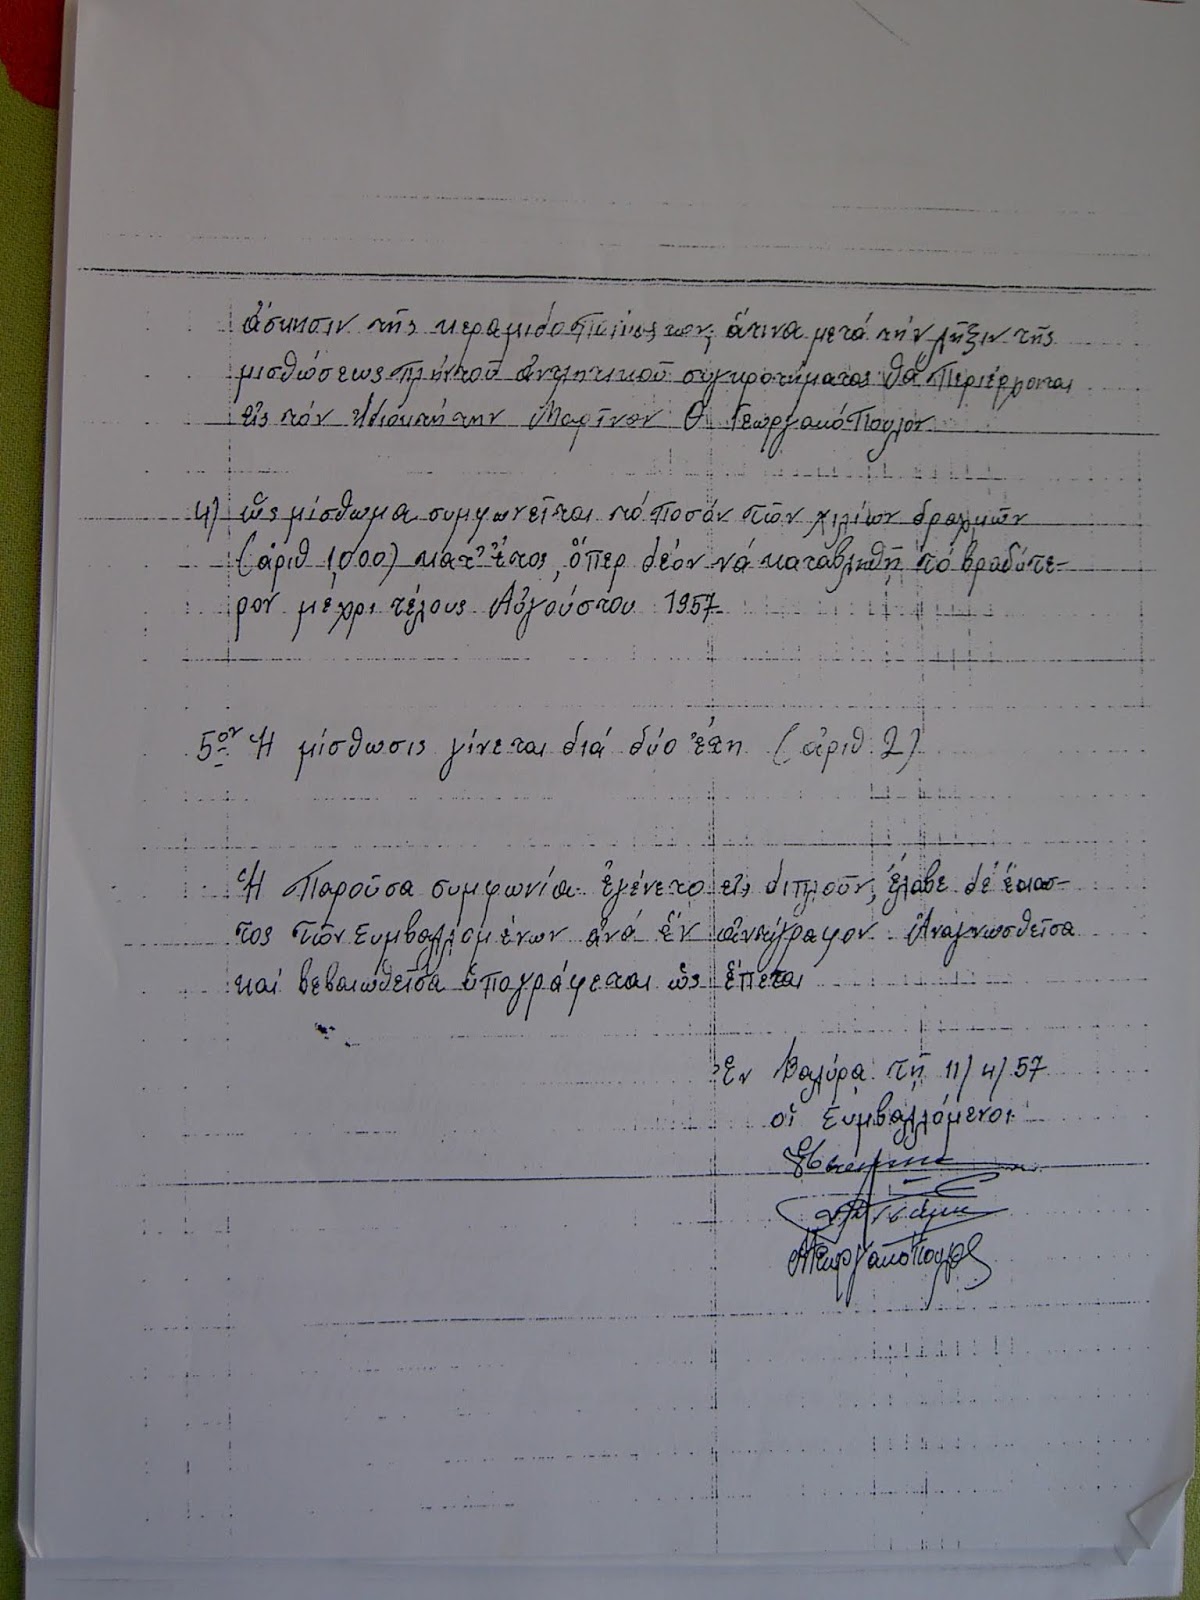 ἄσκησιν τῆς κεραμιδοποιίας των, ἅτινα μετά τήν λῆξιν τῆς
μισθώσεως πλήν τοῦ ἀντλητικοῦ συγκροτήματος θά περιέρχονται
εἰς τόν ἰδιοκτήτην Μαρῖνον Θ. Γεωργακόπουλον
4) ὡς μίσθωμα συμφωνεῖται τό ποσόν τῶν χιλίων δραχμῶν
(ἀριθ 1,000) κατ' ἔτος, ὅπερ δέον νά καταβληθῇ τό βραδύτε-
ρον μέχρι τέλους Αὐγούστου 1957
5ον Ἡ μίσθωσις γίνεται διά δύο ἔτη (ἀριθ. 2)
Ἡ παροῦσα συμφωνία ἐγένετο εἰς διπλοῦν, ἔλαβε δέ ἕκασ-
τος τῶν συμβαλλομένων ἀνά ἕν ἀντίγραφον. Ἀναγνωσθεῖσα
καί βεβαιωθεῖσα ὑπογράφεται ὡς ἕπεται
Ἐν Βαλύρᾳ τῇ 11/4/57
οἱ Συμβαλλόμενοι
ΜΓεωργακόπουλος